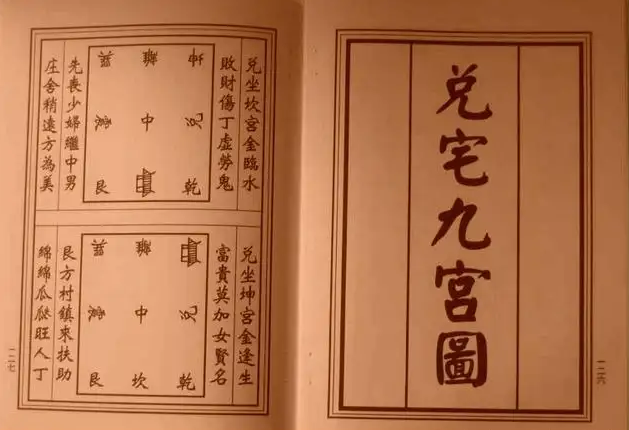 兌宅九宮圖
一二六
兌坐坎宮金臨水
敗財傷丁虛勞鬼
巽 離 坤
震 中 兌
艮 乾
先喪少婦繼中男
庄舍稍遠方為美
兌坐坤宮金逢生
富貴莫加女賢名
巽 離
震 中 兌
艮 坎 乾
艮方村鎮來扶助
綿綿瓜瓞旺人丁
一二七